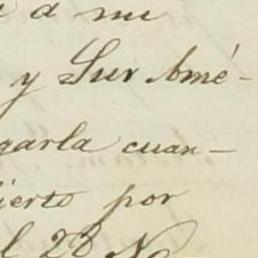 a mi
y Sur Amé-
garla cuan-
ierto por
l 28 No